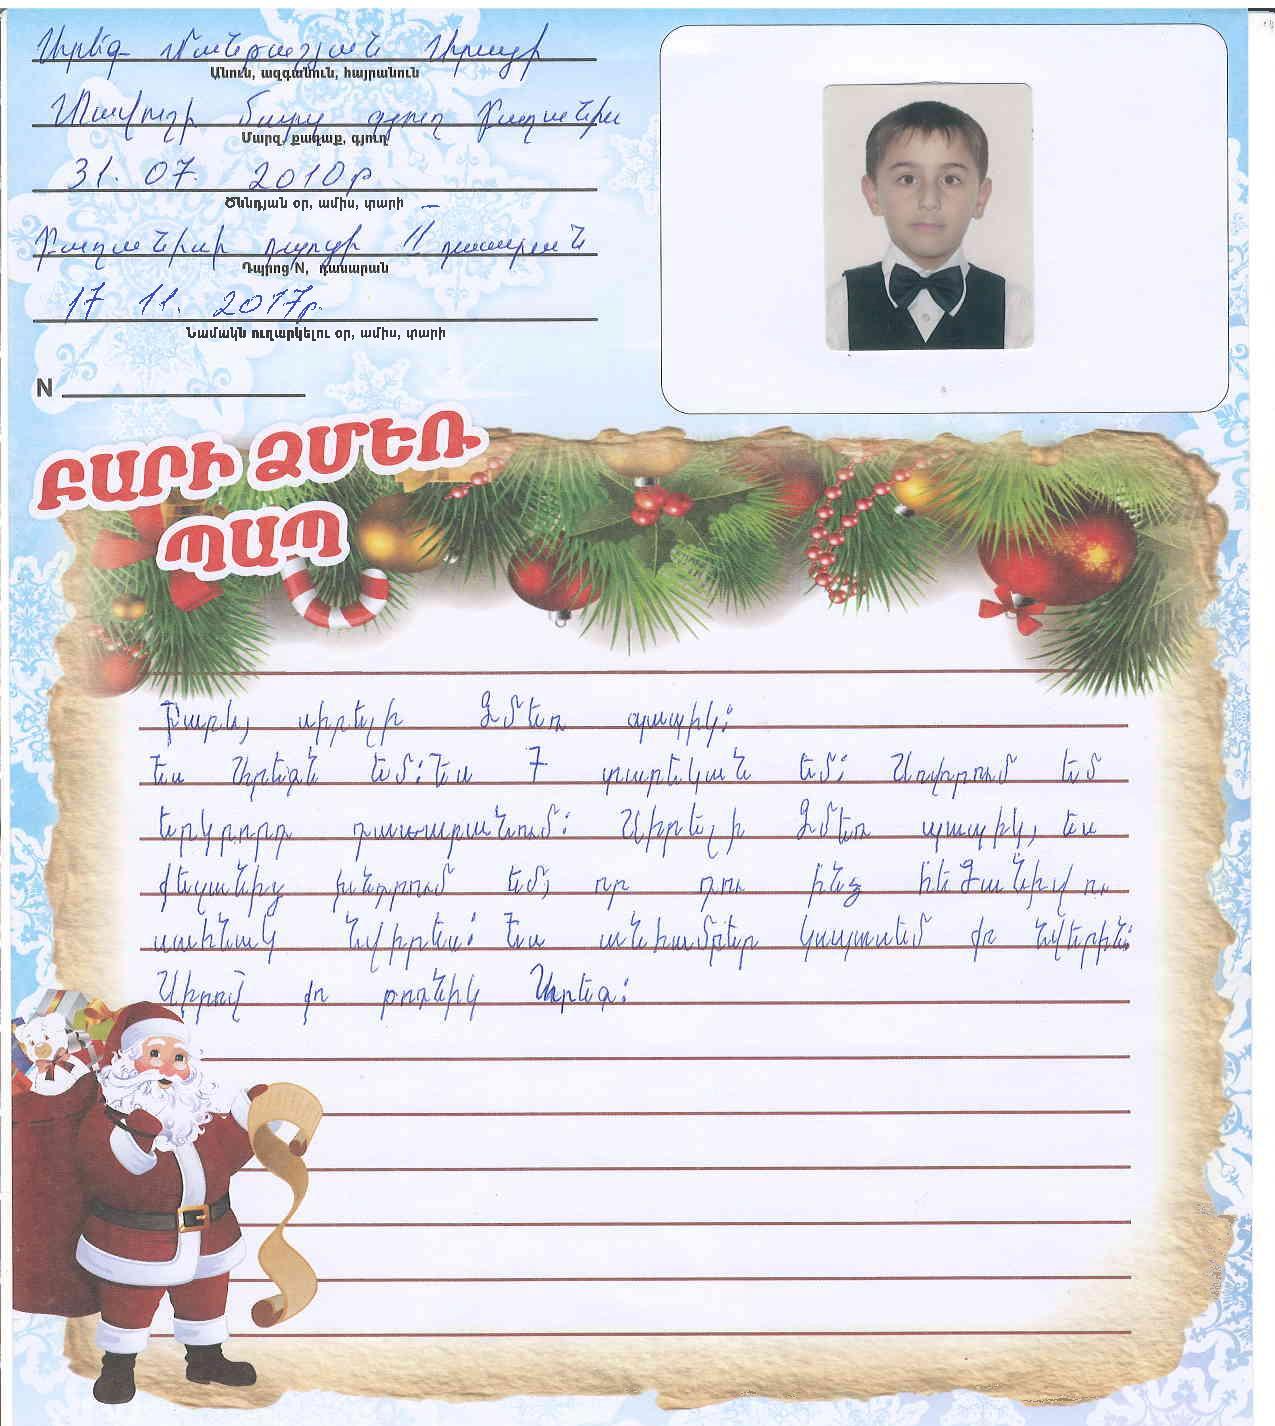 Արեգ Մանթաշյան Արայի
Անուն, ազգանուն, հայրանուն
Տավուշի մարզ գյուղ Բաղանիս
Մարզ, քաղաք, գյուղ
31. 07. 2010թ
Ծննդյան օր, ամիս, տարի
Բաղանիսի դպրոցի II դասարան
Դպրոց N, դասարան
17 11. 2017թ.
Նամակն ուղարկելու օր, ամիս, տարի
N
ԲԱՐԻ ՁՄԵՌ
ՊԱՊ
Բարև, սիրելի Ձմեռ պապիկ:
Ես Արեգն եմ: Ես 7 տարեկան եմ: Սովորում եմ
երկրորդ դասարանում: Սիրելի Ձմեռ պապիկ, ես
քեզանից խնդրում եմ, որ դու ինձ հեծանիվ ու
սահնակ նվիրես: Ես անհամբեր կսպասեմ քո նվերին:
Սիրով քո թոռնիկ Արեգ: